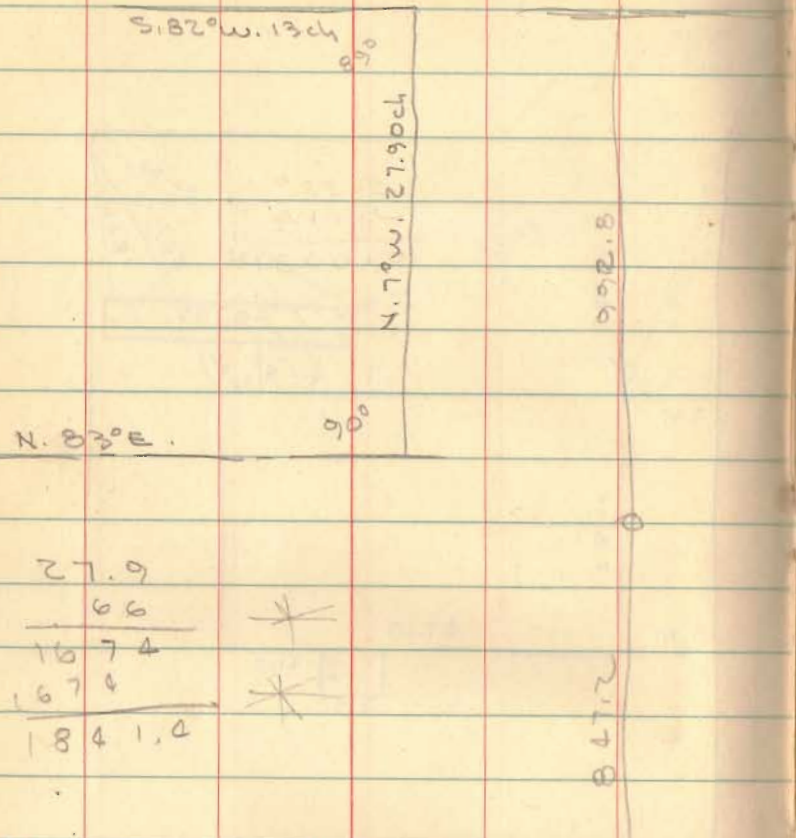 S. 82° W. 13 ch
89°
N. 7° W. 27.90 ch
992.8
90°
N. 83° E.
27.9
66
1674
1674
1841.4
847.2